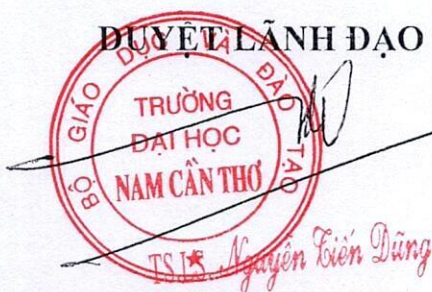 DUYỆT LÃNH ĐẠO
BỘ GIÁO DỤC VÀ ĐÀO TẠO
TRƯỜNG
ĐẠI HỌC
NAM CẦN THƠ
Nguyễn Tiến Dũng